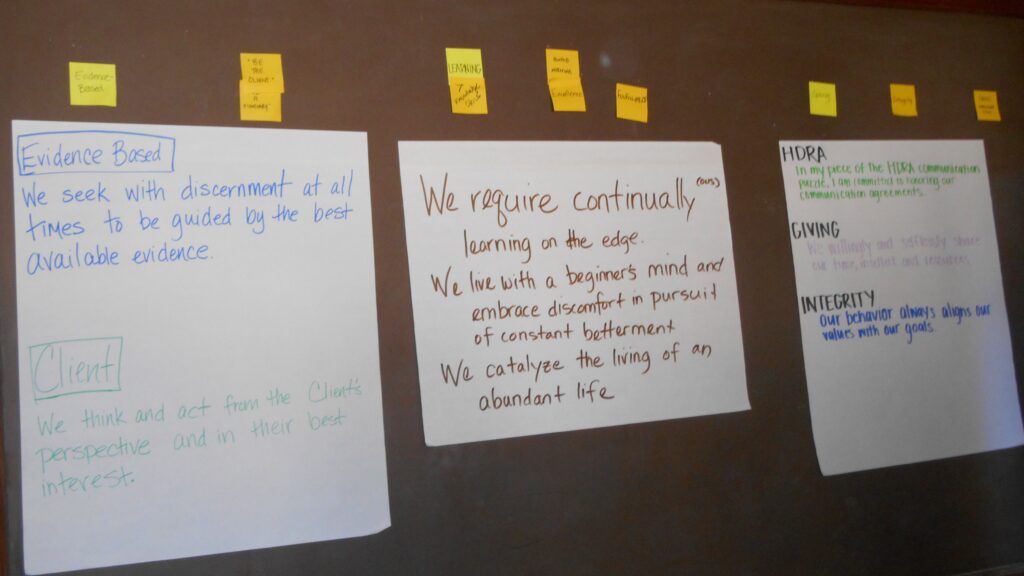 Evidence-
Based
"BE
THE
CLIENT"
A
FIDUCIARY
LEARNING
Excellence
Fulfillment
Giving
Integrity
Evidence Based
We seek with discernment at all
times to be guided by the best
available evidence.
Client
We think and act from the Client's
perspective and in their best
interest.
We require continually
learning on the edge.
We live with a beginner's mind and
embrace discomfort in pursuit
of constant betterment
We catalyze the living of an
abundant life
HDRA
In my piece of the HDRA communication
puzzle, I am committed to honoring our
communication agreements.
GIVING
We willingly and selflessly share
our time, intellect and resources
INTEGRITY
Our behavior always aligns our
values with our goals.